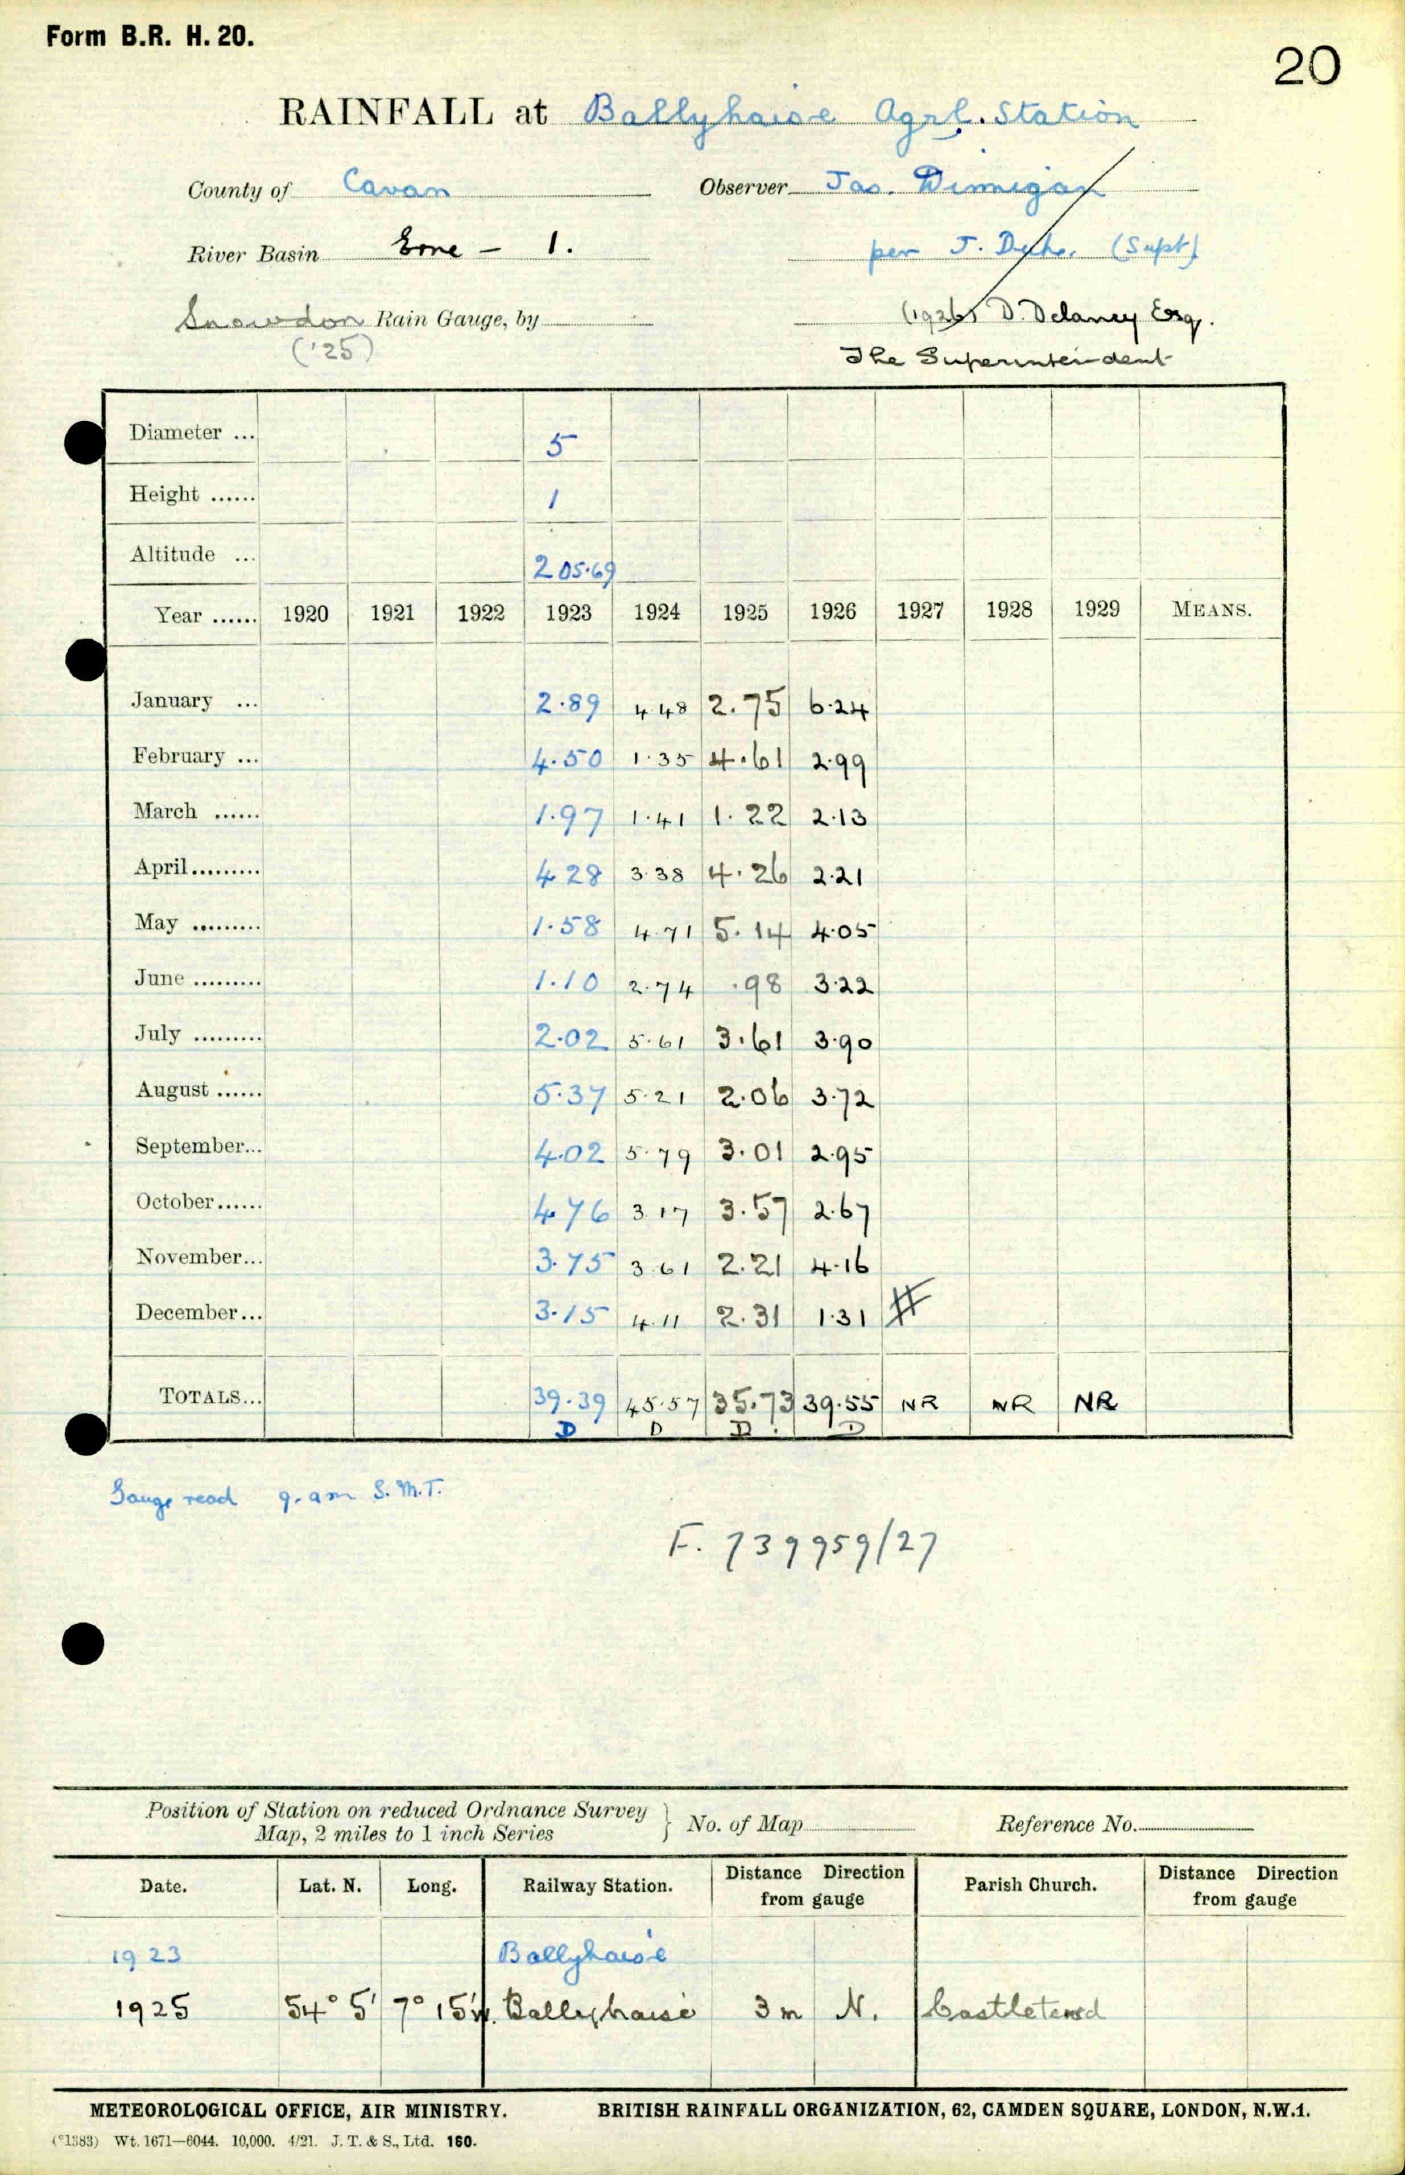 Form B.R. H. 20.
20
RAINFALL at Ballyhaise Agrl. Station
County of Cavan Observer Jas. Dinnigan
River Basin Erne - 1. per J. (Supt)
Snowdon Rain Gauge, by (1926) D. Delaney Esq.
('25) The Superintendent
Diameter ... 5
Height ...... 1
Altitude ... 205.69
Year ...... 1920 1921 1922 1923 1924 1925 1926 1927 1928 1929 MEANS.
January ... 2.89 4.48 2.75 6.24
February ... 4.50 1.35 4.61 2.99
March ...... 1.97 1.41 1.22 2.13
April......... 4.28 3.38 4.26 2.21
May ......... 1.58 4.71 5.14 4.05
June ......... 1.10 2.74 .98 3.22
July ......... 2.02 5.61 3.61 3.90
August ...... 5.37 5.21 2.06 3.72
September... 4.02 5.79 3.01 2.95
October...... 4.76 3.17 3.57 2.67
November... 3.75 3.61 2.21 4.16
December... 3.15 4.11 2.31 1.31 #
TOTALS... 39.39 45.57 35.73 39.55 NR NR NR
D D D D
Gauge read 9. am G.M.T.
F. 739959/27
Position of Station on reduced Ordnance Survey
Map, 2 miles to 1 inch Series } No. of Map Reference No.
Date. Lat. N. Long. Railway Station. Distance Direction from gauge Parish Church. Distance Direction from gauge
1923 Ballyhaise
1925 54° 5' 7° 15'W. Ballyhaise 3 m N. Castleterra
METEOROLOGICAL OFFICE, AIR MINISTRY. BRITISH RAINFALL ORGANIZATION, 62, CAMDEN SQUARE, LONDON, N.W.1.
(*1383) Wt. 1671—6044. 10,000. 4/21. J. T. & S., Ltd. 160.